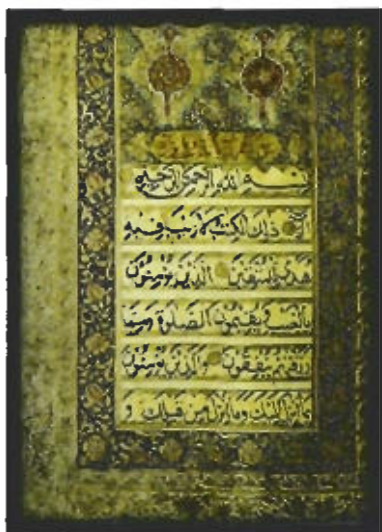 بسم الله الرحمن الرحيم
الم ذلك الكتب لا ريب فيه
هدى للمتقين الذين يؤمنون
بالغيب ويقيمون الصلوة ومما
رزقنهم ينفقون والذين يؤمنون
بما أنزل إليك وما أنزل من قبلك و